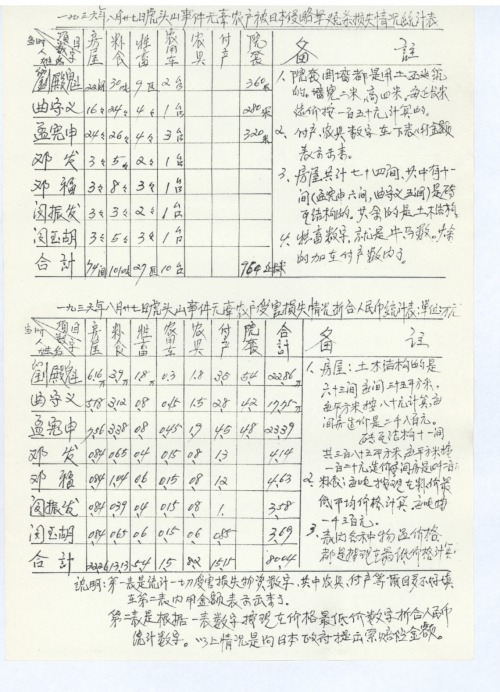 一九三六年八月廿七日虎头山事件元宝农户被日本侵略军烧杀损失情况统计表
当时人姓名 项目数字 房屋 粮食 牲畜 农用车 农具 付产 院套 备 註
刘殿魁 22间 30吨 9匹 2台 360米
曲守义 16〃 24〃 4〃 1台 280米
孟宪申 24〃 26〃 4〃 3台 320米
邓发 3〃 5〃 2〃 1台
邓福 3〃 8〃 3〃 1台
闵振发 3〃 3〃 2〃 1台
闵玉胡 3〃 5〃 3〃 1台
合計 74间 101吨 27匹 10台 960延长米
1、院套围墙都是用土
的。墙宽二米,高四米。每延长米
造价按一百五十元计算的。
2、付产、农具数字在下表的金额
表示出来。
3、房屋共计七十四间,其中有十一
间(孟宪申六间,曲守义五间)是砖
瓦结构的。其余的是土木结构。
4、牲畜数字,就是牛马数。其余
的加在付产数内了。
一九三六年八月廿七日虎头山事件元宝农户受害损失情况折合人民币统计表:单位:万元
当时人姓名 项目数字 房屋 粮食 牲畜 农用车 农具 付产 院套 合計 备 註
刘殿魁 6.16万 3.9万 1.8万 0.3 1.8 3.5 5.4 22.86
曲守义 5.78 3.12 0.8 0.15 1.5 2.8 4.2
孟宪申 7.56 3.38 0.8 0.45 1.9 4.5 4.8 23.39
邓发 0.84 0.65 0.4 0.15 0.8 1.3 4.14
邓福 0.84 1.04 0.6 0.15 0.8 1.2 4.63
闵振发 0.84 0.39 0.4 0.15 0.8 1. 3.58
闵玉胡 0.84 0.65 0.6 0.15 0.6 0.85 3.69
合計 13.13 5.4 1.5 8.2 15.15
1、房屋:土木结构的是
六十三间每间三十五平方米,
每平方米按八十元计算,每
间房造价是二千八百元。
砖瓦结构十一间
共三百八十五平方米每平方米按
一百二十元造价每间房是四千二百元
2、粮食:每吨按现在粮价最
低平均价格计算,每吨由
一千三百元。
3、表内各种物品价格
都是按现在最低价格计算
说明:第一表是统计一切受害损失物资数字,其中农具、付产等项目多不好填
在第二表内用金额表示出来了。
第二表是根据一表数字按现在价格最低价数字折合人民币
统计数字。以上情况是向日本政府提出索赔金额。